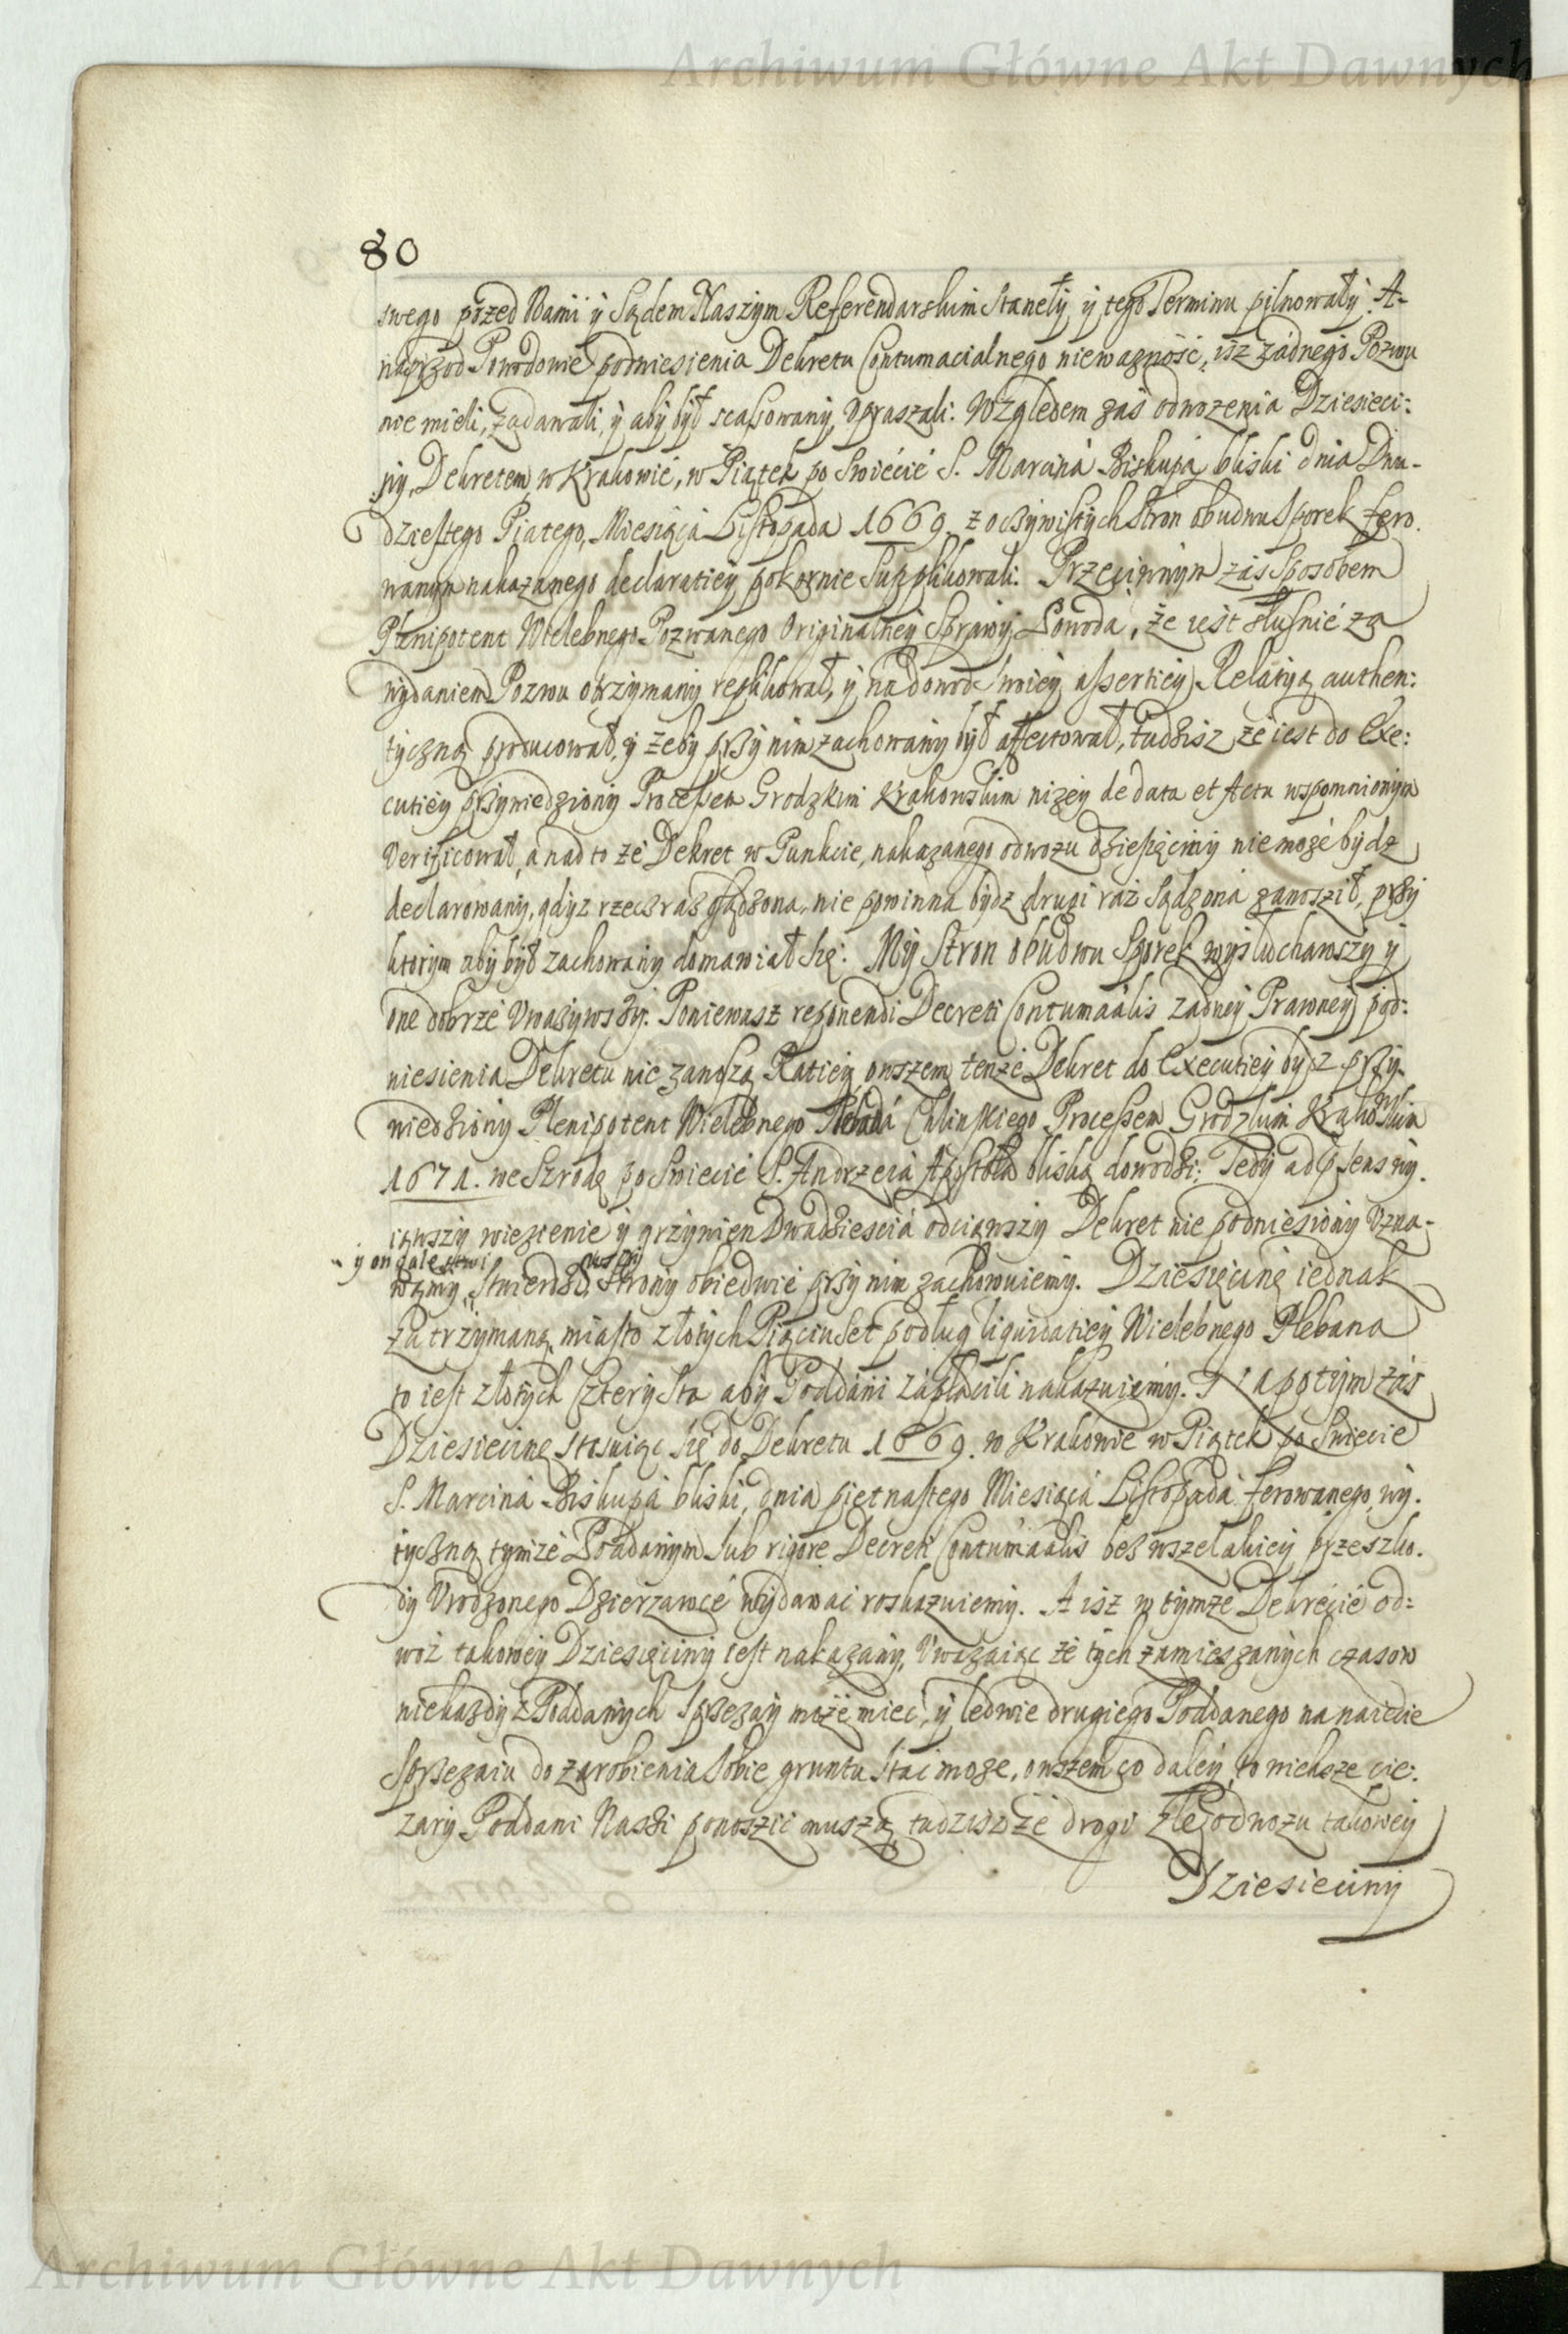 Archiwum Główne Akt Dawnych
80
swego przed Nami y Sądem Naszym Referendarskim Stanęły y tego Terminu pilnowały. A-
naprzod Powodowie podniesienia Dekretu Contumacialnego nieważność, isz żadnego Pozwu
nie mieli, zadawali, y aby był scassowany, vpraszali. Względem zaś odwozenia Dziesieci:
ny, Dekretem w Krakowie, w Piątek po Swięcie S. Marcina Biskupa bliski dnia Dwu-
dziestego Piątego, Miesiąca Listopada 1669. z oczywistych Stron obudwu Sporek fero.
wanym nakazanego declaratiey pokornie Supplikowali. Przeciwnym zaś Sposobem
Plenipotent Wielebnego Pozwanego Originalney Sprawy Powoda, że iest słusnie za
wydaniem Pozwu otrzymany replikował, y na dowod Swoiey assertiey Relatyą authen:
tyczną producował, y żeby przy nim zachowany był affectował, tudzisz że iest do Exe:
cutiey przywiedziony Processem Grodzkim Krakowskim niżey de data et Actu wspomnionym
Verificował, a nad to że Dekret w Punkcie, nakazanego odwozu dziesięciny nie może bydz
declarowany, gdyz rzecz raz osądzona, nie powinna bydz drugi raz Sądzona zanosził, przy
ktorym aby był zachowany domawiał się. My Stron obudwu Sporek wysłuchawszy y
one dobrze Vważywszy. Poniewasz reponendi Decreti Contumacialis żadney Prawney pod:
niesienia Dekretu nie zanoszą Ratiey owszem tenże Dekret do Executiey bydz przy-
wiedziony Plenipotent Wielebnego Chlinskiego Processem Grodzkim Krakowskim
1671. we Szrodę po Swięcie S. Andrzeia Apostoła bliską dowodzi. Tedy ad psens wy.
iąwszy więzienie y grzywien Dwadziescia odciąwszy Dekret nie podniesiony Vzna-
y on
wamy, Stwierdziwszy Strony obiedwie przy nim zachowuiemy. Dziesięcinę iednak
zatrzymaną, miasto złotych Piąciuset podług liquidatiey Wielebnego Plebana
to iest złotych Cztery Sta aby Poddani zapłacili nakazuiemy. Na potym zaś
Dziesięcinę Stosuiąc się do Dekretu 1669. w Krakowie w Piątek po Swięcie
S. Marcina Biskupa bliski, dnia piętnastego Miesiąca Listopada ferowanego, wy.
tyczną tymże Poddanym Sub rigore Decreti Contumacialis bez wszelakiey przeszko.
dy Vrodzonego Dzierzawcé wydawać roskazuiemy. A isz w tymże Dekrecie od=
woz takowey Dziesięciny iest nakazany, Vważaiąc że tych zamieszanych czasow
niekazdy z Poddanych Sprzęzay może mieć, y ledwie drugiego Poddanego na naięcie
Sprzęzaiu do zarobienia Sobie gruntu Stać może, owszem co daley, to większe cię:
zary Poddani Naszi ponoszić muszą, tudzisz że drogi złe odwozu takowey
Dziesięciny
Archiwum Główne Akt Dawnych